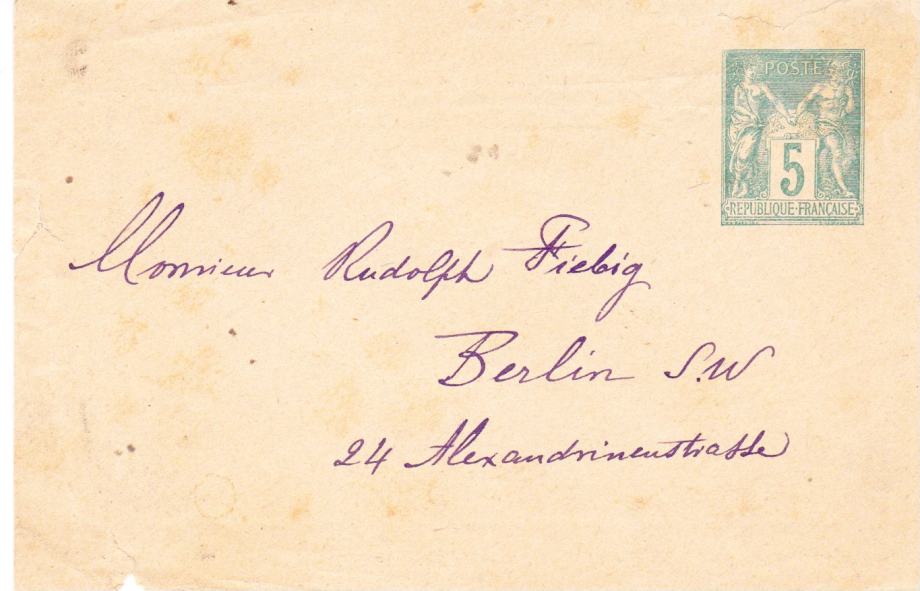 POSTE
5
REPUBLIQUE·FRANÇAISE
Monsieur Rudolph Fiebig
Berlin S.W
24 Alexandrinenstrasse